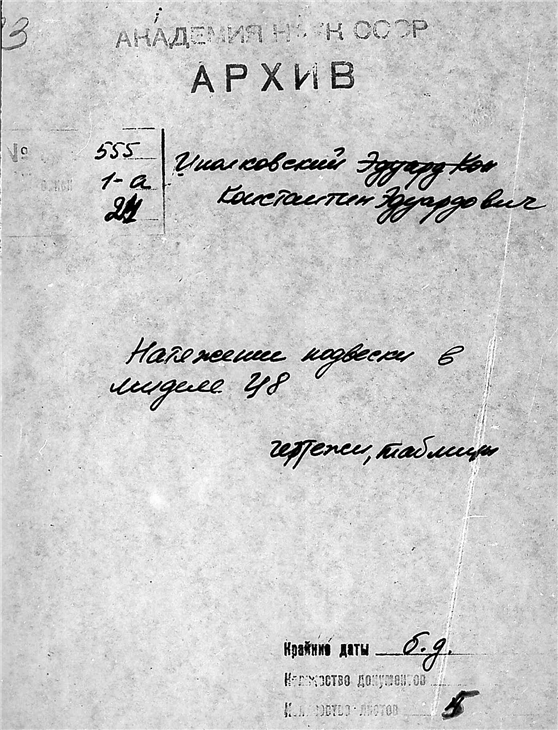 АКАДЕМИЯ НАУК СССР
АРХИВ
555
1-а
24
Циолковский Эдуард Кон
Константин Эдуардович
Натяжение подвески в
миделе Ц8
чертежи, таблицы
Крайние даты б.д.
Количество документов
Количество листов 5